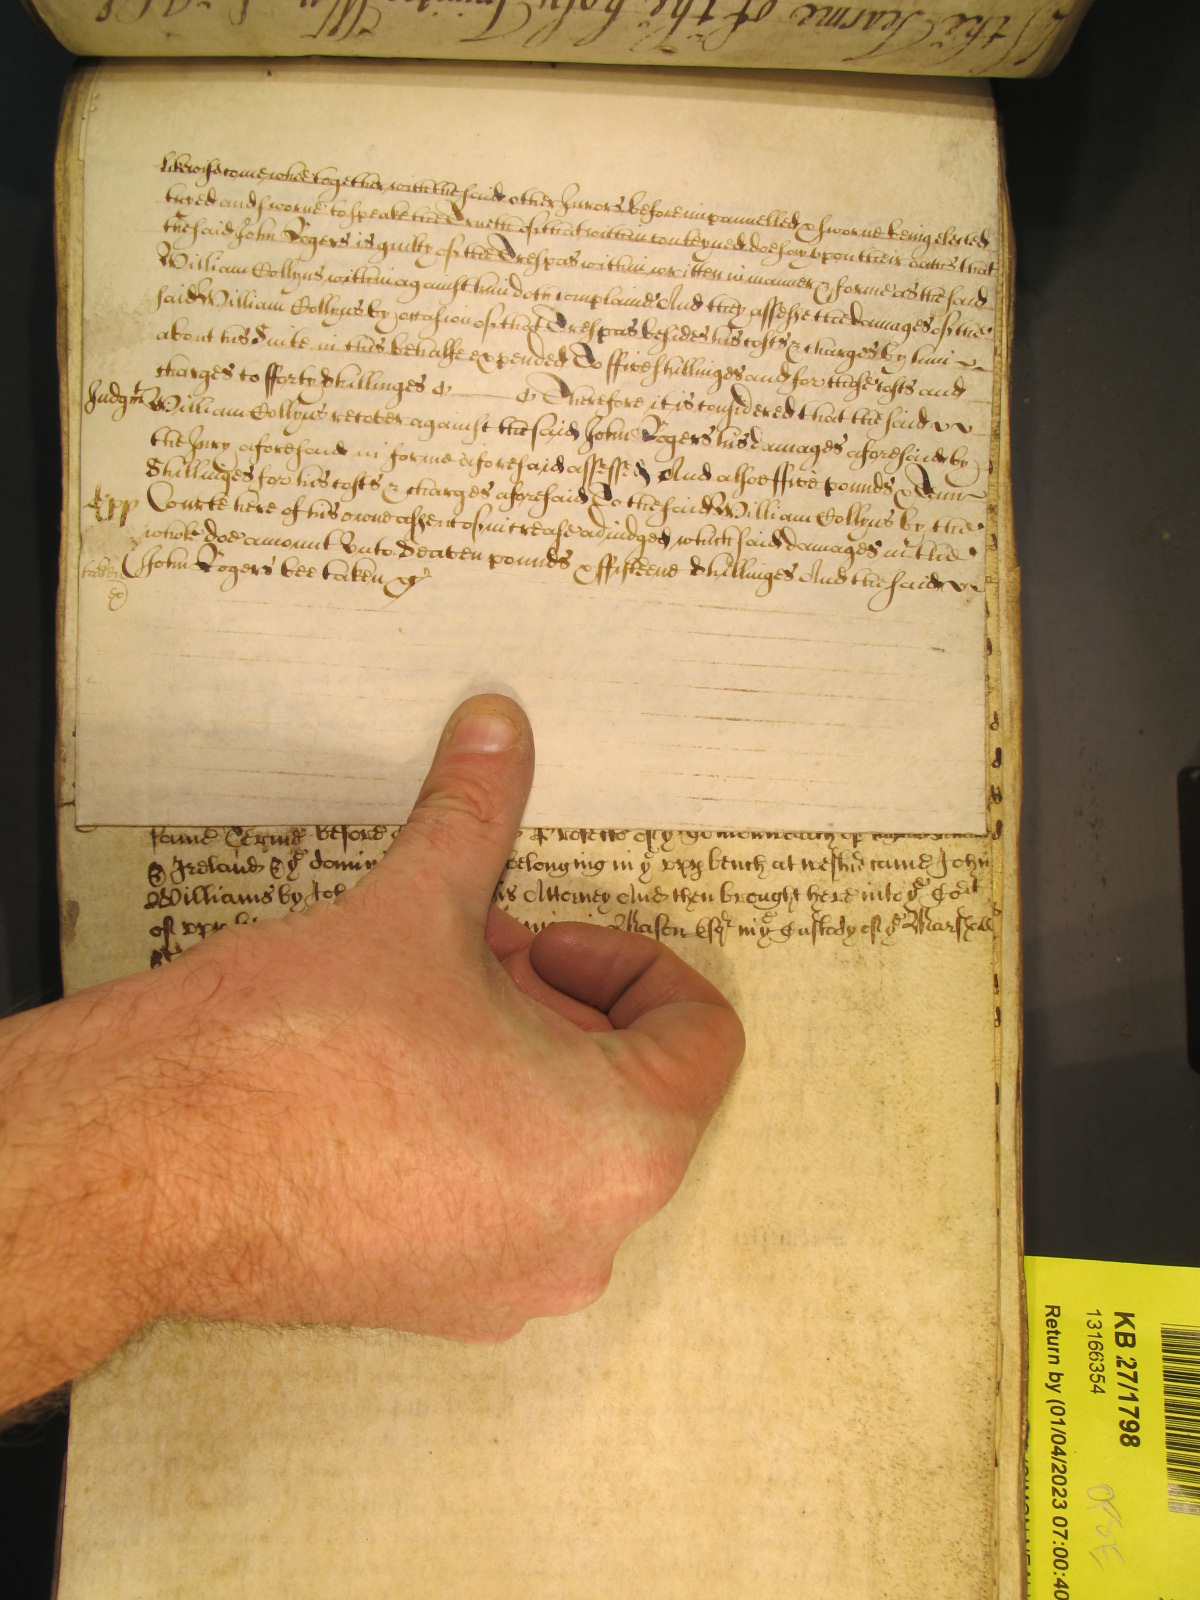 the Tearme of the holy Trinity
likewise come whoe together with the said other Jurors before impannelled & sworne being elected
tryed and sworne to speake the Trueth of that within conteyned doe say uppon their oathes that
the said John Rogers is guilty of the Trespas within written in manner & forme as the said
William Collyns within against him doth complaine And they assesse the damages of the
said William Collyns by occasion of that Trespas besides his costs & charges by him
about his Suite in this behalfe expended To ffive shillinges and for those costs and
charges to fforty shillinges Therefore it is considered that the said
Judgmt William Collyns recover against the said John Rogers his damages aforesaid by
the Jury aforesaid in forme aforesaid assessed And alsoe ffive pounds & Tenn
Shillinges for his costs & charges aforesaid To the said William Collyns by the
Court here of his owne assent of increase adiudged which said damages in the
whole doe amount Unto Seaven pounds & ffifteene Shillinges And the said
John Rogers bee taken &c
same Terme before
& Ireland & ye domin belonging in ye upp bench at westm came John
Williams by Joh is Attorney And then brought here into ye Court
of upp Mason Esqr in ye Custody of ye Marshall
KB 27/1798
13166354
Return by (01/04/2023 07:00:40